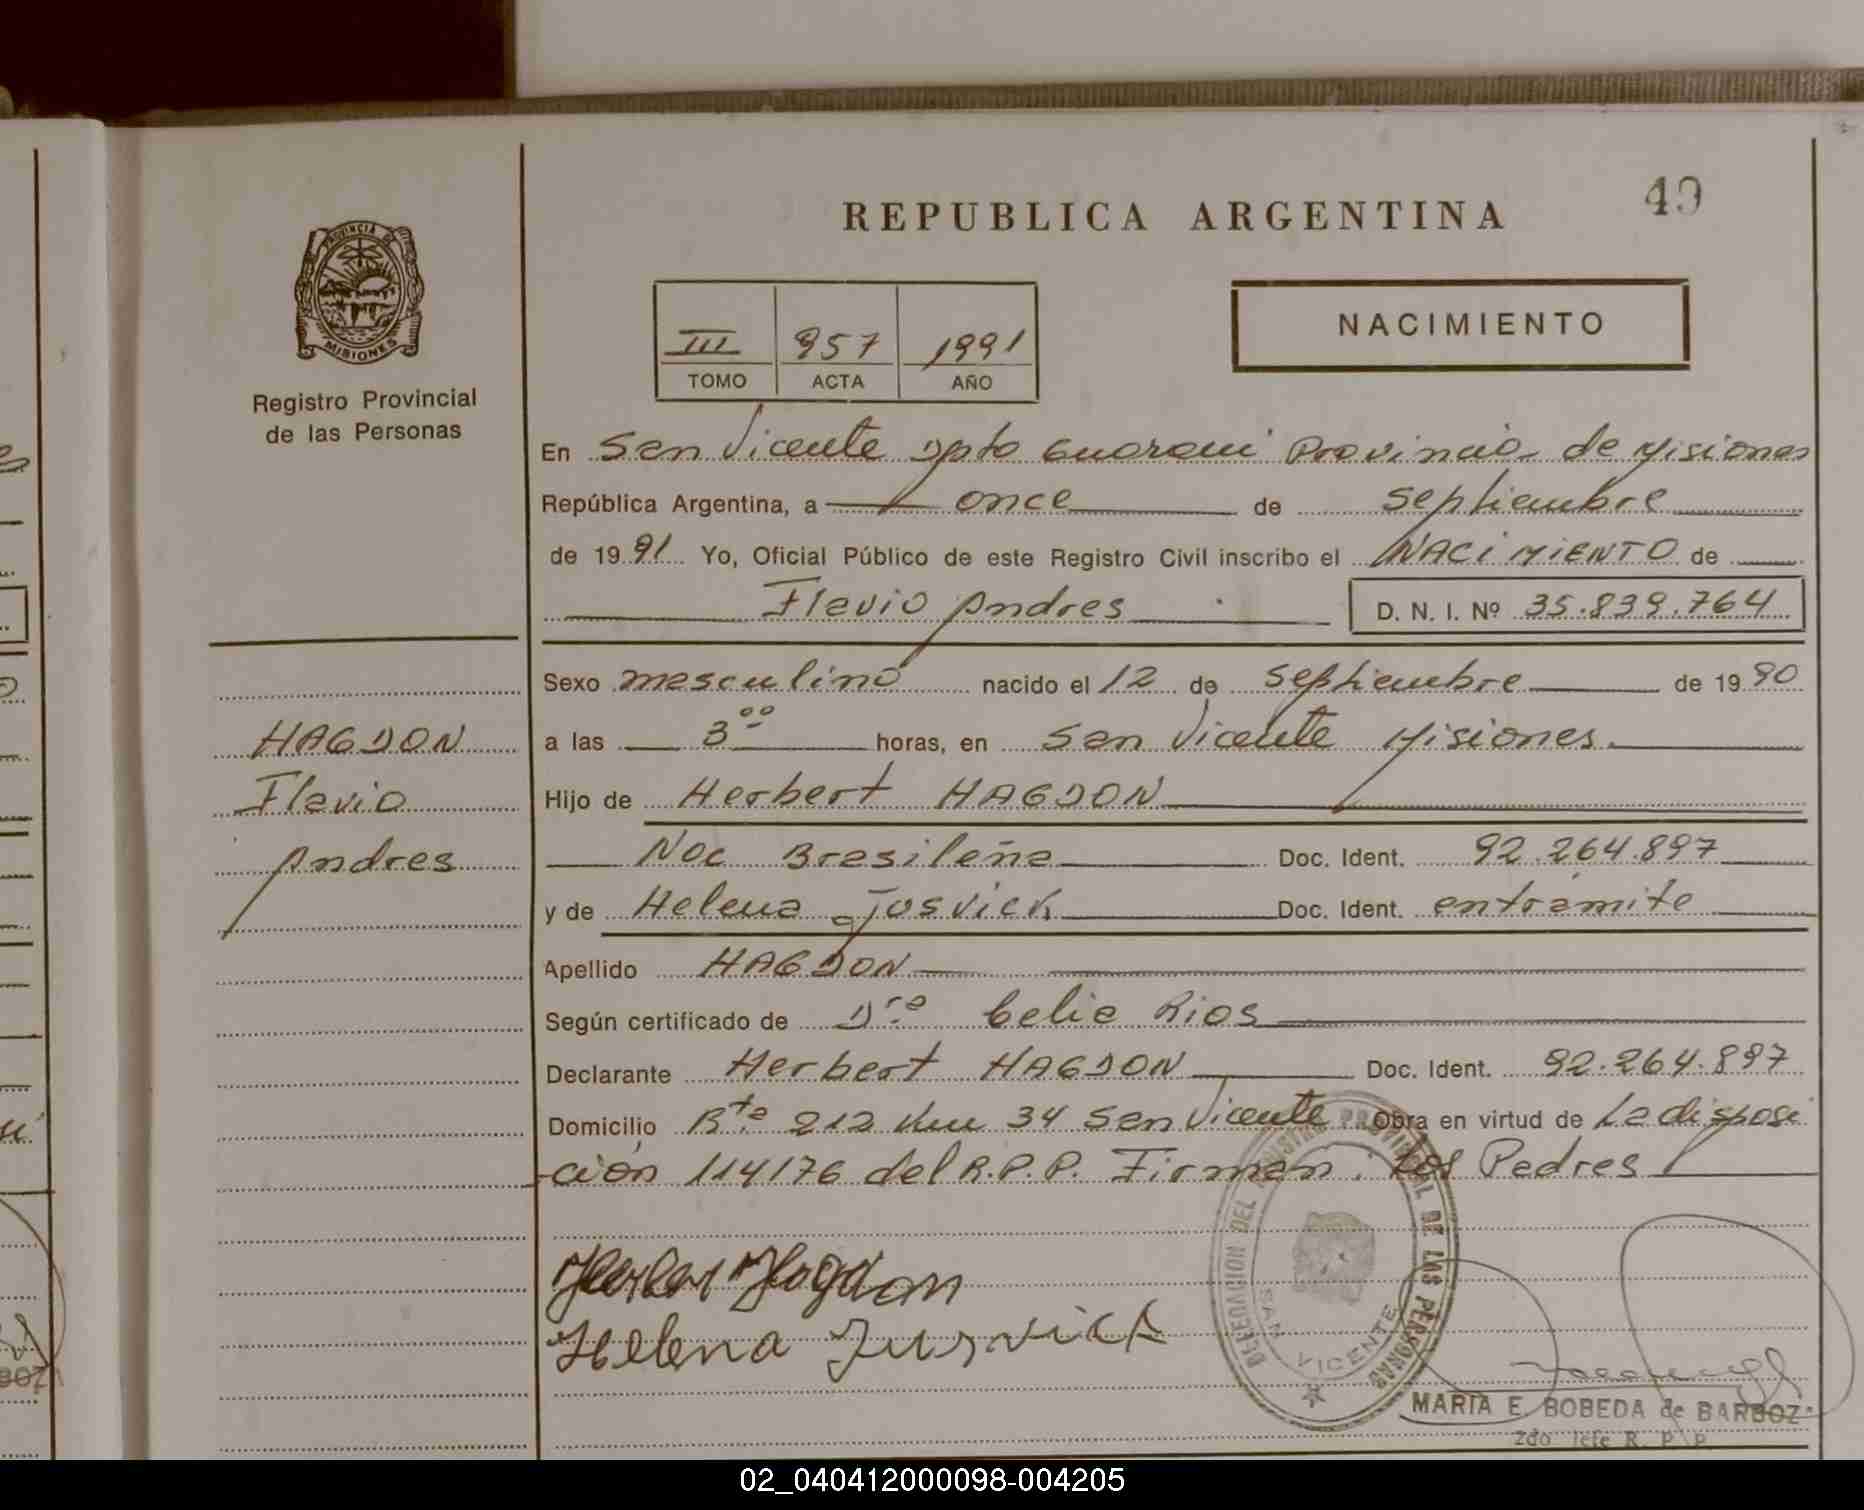 REPUBLICA ARGENTINA
49
PROVINCIA DE
MISIONES
Registro Provincial
de las Personas
III 957 1991
TOMO ACTA AÑO
NACIMIENTO
En San Vicente Dpto Guarani Provincia de Misiones
República Argentina, a once de septiembre
de 1991 Yo, Oficial Público de este Registro Civil inscribo el NACIMIENTO de
Flavio Andres D. N. I. Nº 35.839.764
Sexo masculino nacido el 12 de septiembre de 1990
HAGDON
a las 3 00 horas, en San Vicente Misiones.
Flavio
Hijo de Herbert HAGDON
Andres
Nac Brasileña Doc. Ident. 92.264.897
y de Helena Jusvick Doc. Ident. entramite
Apellido HAGDON
Según certificado de Dra Celia Rios
Declarante Herbert HAGDON Doc. Ident. 92.264.897
Domicilio Rta 212 Km 34 San Vicente Obra en virtud de La disposi
ción 114176 del R.P.P. Firman: Los Padres
Herbert Hagdon
Helena Jusvick
DELEGACION DEL REGISTRO PROVINCIAL DE LAS PERSONAS
SAN VICENTE
MARIA E. BOBEDA de BARBOZ
2do Jefe R. P. P.
02_040412000098-004205